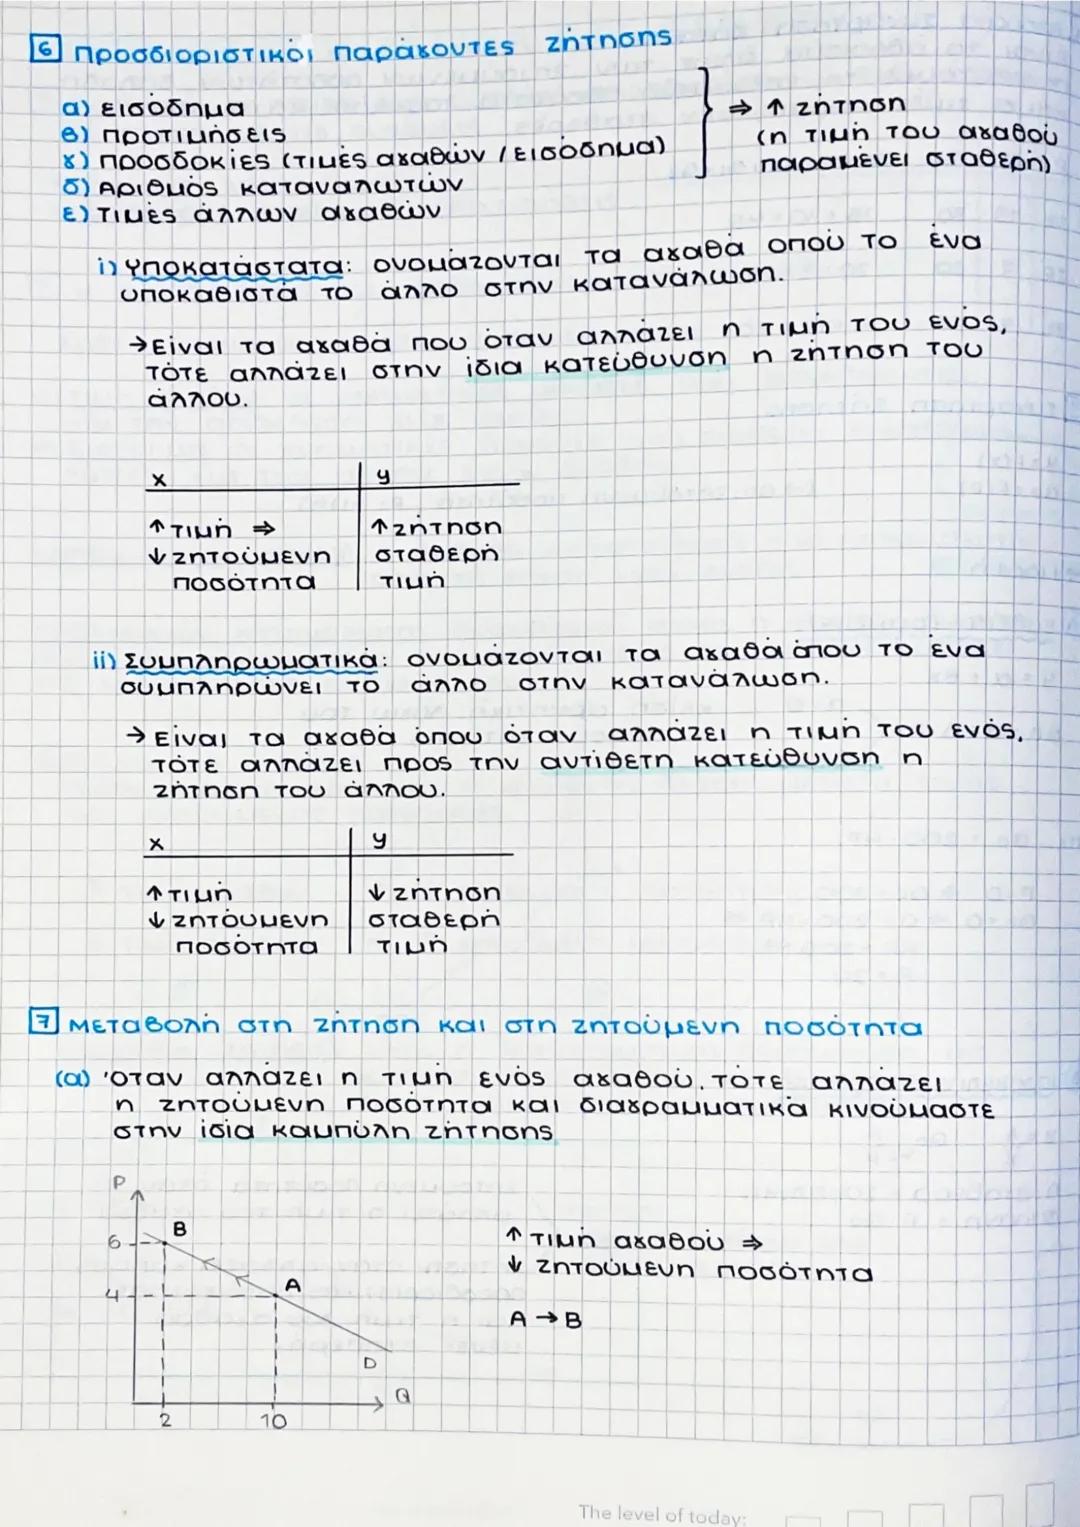 6 Προσδιοριστικοί παράγοντες ζήτησης
α) εισόδημα
β) Προτιμήσεις
γ) Προσδοκίες (τιμές αγαθών / εισόδημα)
δ) Αριθμός καταναλωτών
ε) Τιμές άλλων αγαθών
⇒ ↑ ζήτηση
(η τιμή του αγαθού
παραμένει σταθερή)
i) Υποκατάστατα: ονομάζονται τα αγαθά οπού το ένα
υποκαθιστά το άλλο στην κατανάλωση.
→ Είναι τα αγαθά που όταν αλλάζει η τιμή του ενός,
τότε αλλάζει στην ίδια κατεύθυνση η ζήτηση του
άλλου.
x y
↑ τιμή ⇒ ↑ ζήτηση
↓ ζητούμενη σταθερή
ποσότητα τιμή
ii) Συμπληρωματικά: ονομάζονται τα αγαθά όπου το ένα
συμπληρώνει το άλλο στην κατανάλωση.
→ Είναι τα αγαθά όπου όταν αλλάζει η τιμή του ενός,
τότε αλλάζει προς την αντίθετη κατεύθυνση η
ζήτηση του άλλου.
x y
↑ τιμή ↓ ζήτηση
↓ ζητούμενη σταθερή
ποσότητα τιμή
7 Μεταβολή στη ζήτηση και στη ζητούμενη ποσότητα
(α) Όταν αλλάζει η τιμή ενός αγαθού, τότε αλλάζει
η ζητούμενη ποσότητα και διαγραμματικά κινούμαστε
στην ίδια καμπύλη ζήτησης
P
6 B
4 A
D
Q
2 10
↑ τιμή αγαθού ⇒
↓ ζητούμενη ποσότητα
A → B
The level of today: